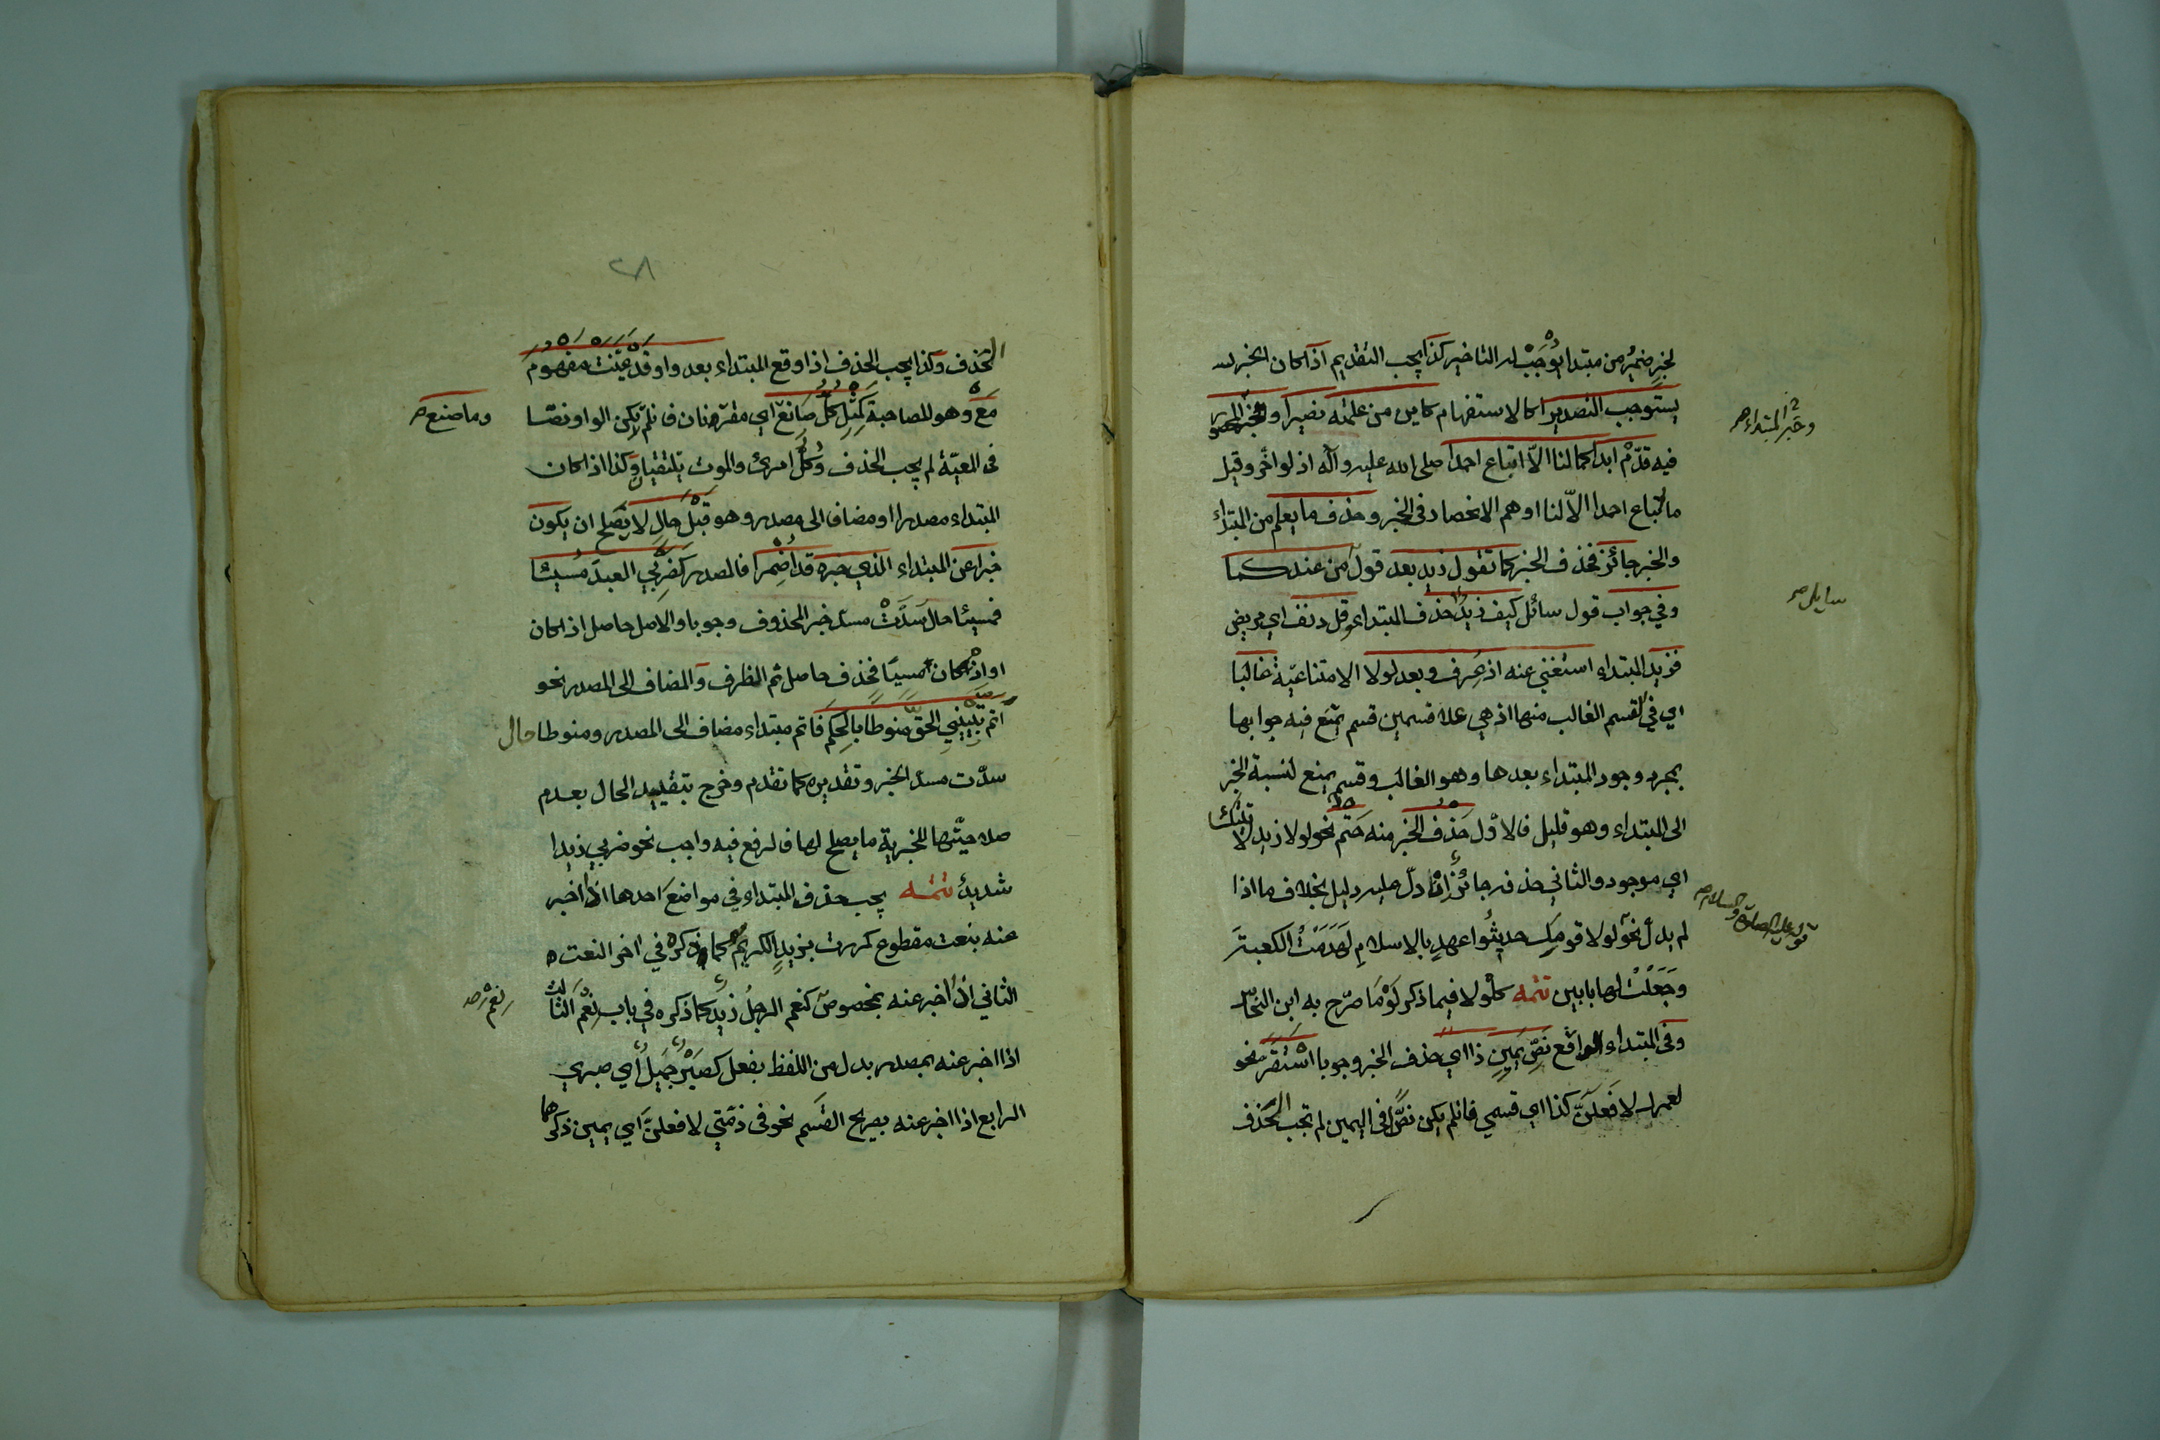 لخبر ضمير من مبتداء يوجب له التاخير كذا يجب التقديم اذا كان الخبر
يستوجب التصديرا كالاستفهام كاين من علمته نصيرا وخبر المحصور
وخبر المبتداء صح
فيه قدم ابدا كما لنا الا اتباع احمدا صلى الله عليه وآله اذ لو اخر وقيل
ما اتباع احمدا الا لنا اوهم الانحصار في الخبر وحذف ما يعلم من المبتداء
والخبر جائز فحذف الخبر كما تقول زيد بعد قول من عندكما
وفي جواب قول سائل كيف زيد حذف المبتداء وقل دنف اي مريض
سايل صح
فزيد المبتداء استغني عنه اذ عرف وبعد لولا الامتناعية غالبا
اي في القسم الغالب منها اذ هي علا قسمين قسم يمتنع فيه جوابها
بمجرد وجود المبتداء بعدها وهو الغالب وقسم يمنع لنسبة الخبر
الى المبتداء وهو قليل فالاول حذف الخبر منه حتم نحو لولا زيد لاتيتك
اي موجود والثاني حذفه جائز اذا دل عليه دليل بخلاف ما اذا
قوله عليه الصلاة والسلام صح
لم يدل نحو لولا قومك حديثوا عهد بالاسلام لهدمت الكعبة
وجعلت لها بابين تتمه كلولا فيما ذكر لوما صرح به ابن النحاس
وفي المبتداء الواقع نص يمين ذا اي حذف الخبر وجوبا استقر نحو
لعمرك لافعلن كذا اي قسمي فان لم يكن نصا في اليمين لم تجب الحذف
٢٨
الحذف وكذا يجب الحذف اذا وقع المبتداء بعد واو قد عينت مفهوم
مع وهو للمصاحبة كمثل كل صانع اي مقترنان فان لم يكن الواو نصا
وما صنع صح
في المعية لم يجب الحذف وكل امرئ والموت يلتقيان وكذا اذا كان
المبتداء مصدرا او مضاف الى مصدر وهو قبل حال لا يصلح ان يكون
خبرا عن المبتداء الذي خبره قد اضمرا فالمصدر كضربي العبد مسيئا
فمسيئا حال سدت مسد خبر المحذوف وجوبا والاصل حاصل اذا كان
او اذ كان مسيئا فحذف حاصل ثم الظرف والمضاف الى المصدر نحو
اتم تبييني الحق منوطا بالحكم فاتم مبتداء مضاف الى المصدر ومنوطا حال
سدت مسد الخبر وتقديره كما تقدم وخرج بتقييد الحال بعدم
صلاحيتها للخبرية ما يصلح لها فالرفع فيه واجب نحو ضربي زيدا
شديد تتمه يجب حذف المبتداء في مواضع احدها اذا اخبر
عنه بنعت مقطوع كمررت بزيد الكريم كما ذكره في اخر النعت
الثاني اذا اخبر عنه بمخصوص كنعم الرجل زيد كما ذكره في باب نعم الثالث
نعم صح
اذا اخبر عنه بمصدر بدل من اللفظ بفعل كصبر جميل اي صبري
الرابع اذا اخبر عنه بصريح القسم نحو في ذمتي لافعلن اي يمين ذكرهما